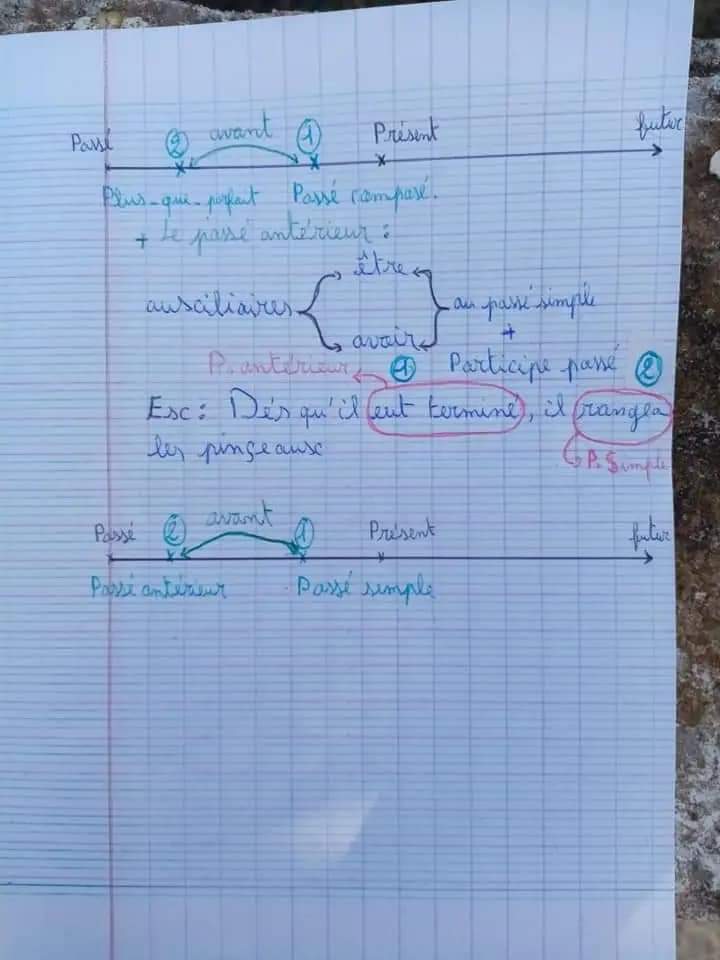 Passé ② avant ① Présent futur
Plus-que-parfait Passé composé.
+ Le passé antérieur :
être
auxiliaires au passé simple
avoir +
P. antérieur ① Participe passé ②
Ex : Dés qu'il eut terminé, il rangea
les pinçeaux
P. Simple
Passé ② avant ① Présent futur
Passé antérieur Passé simple